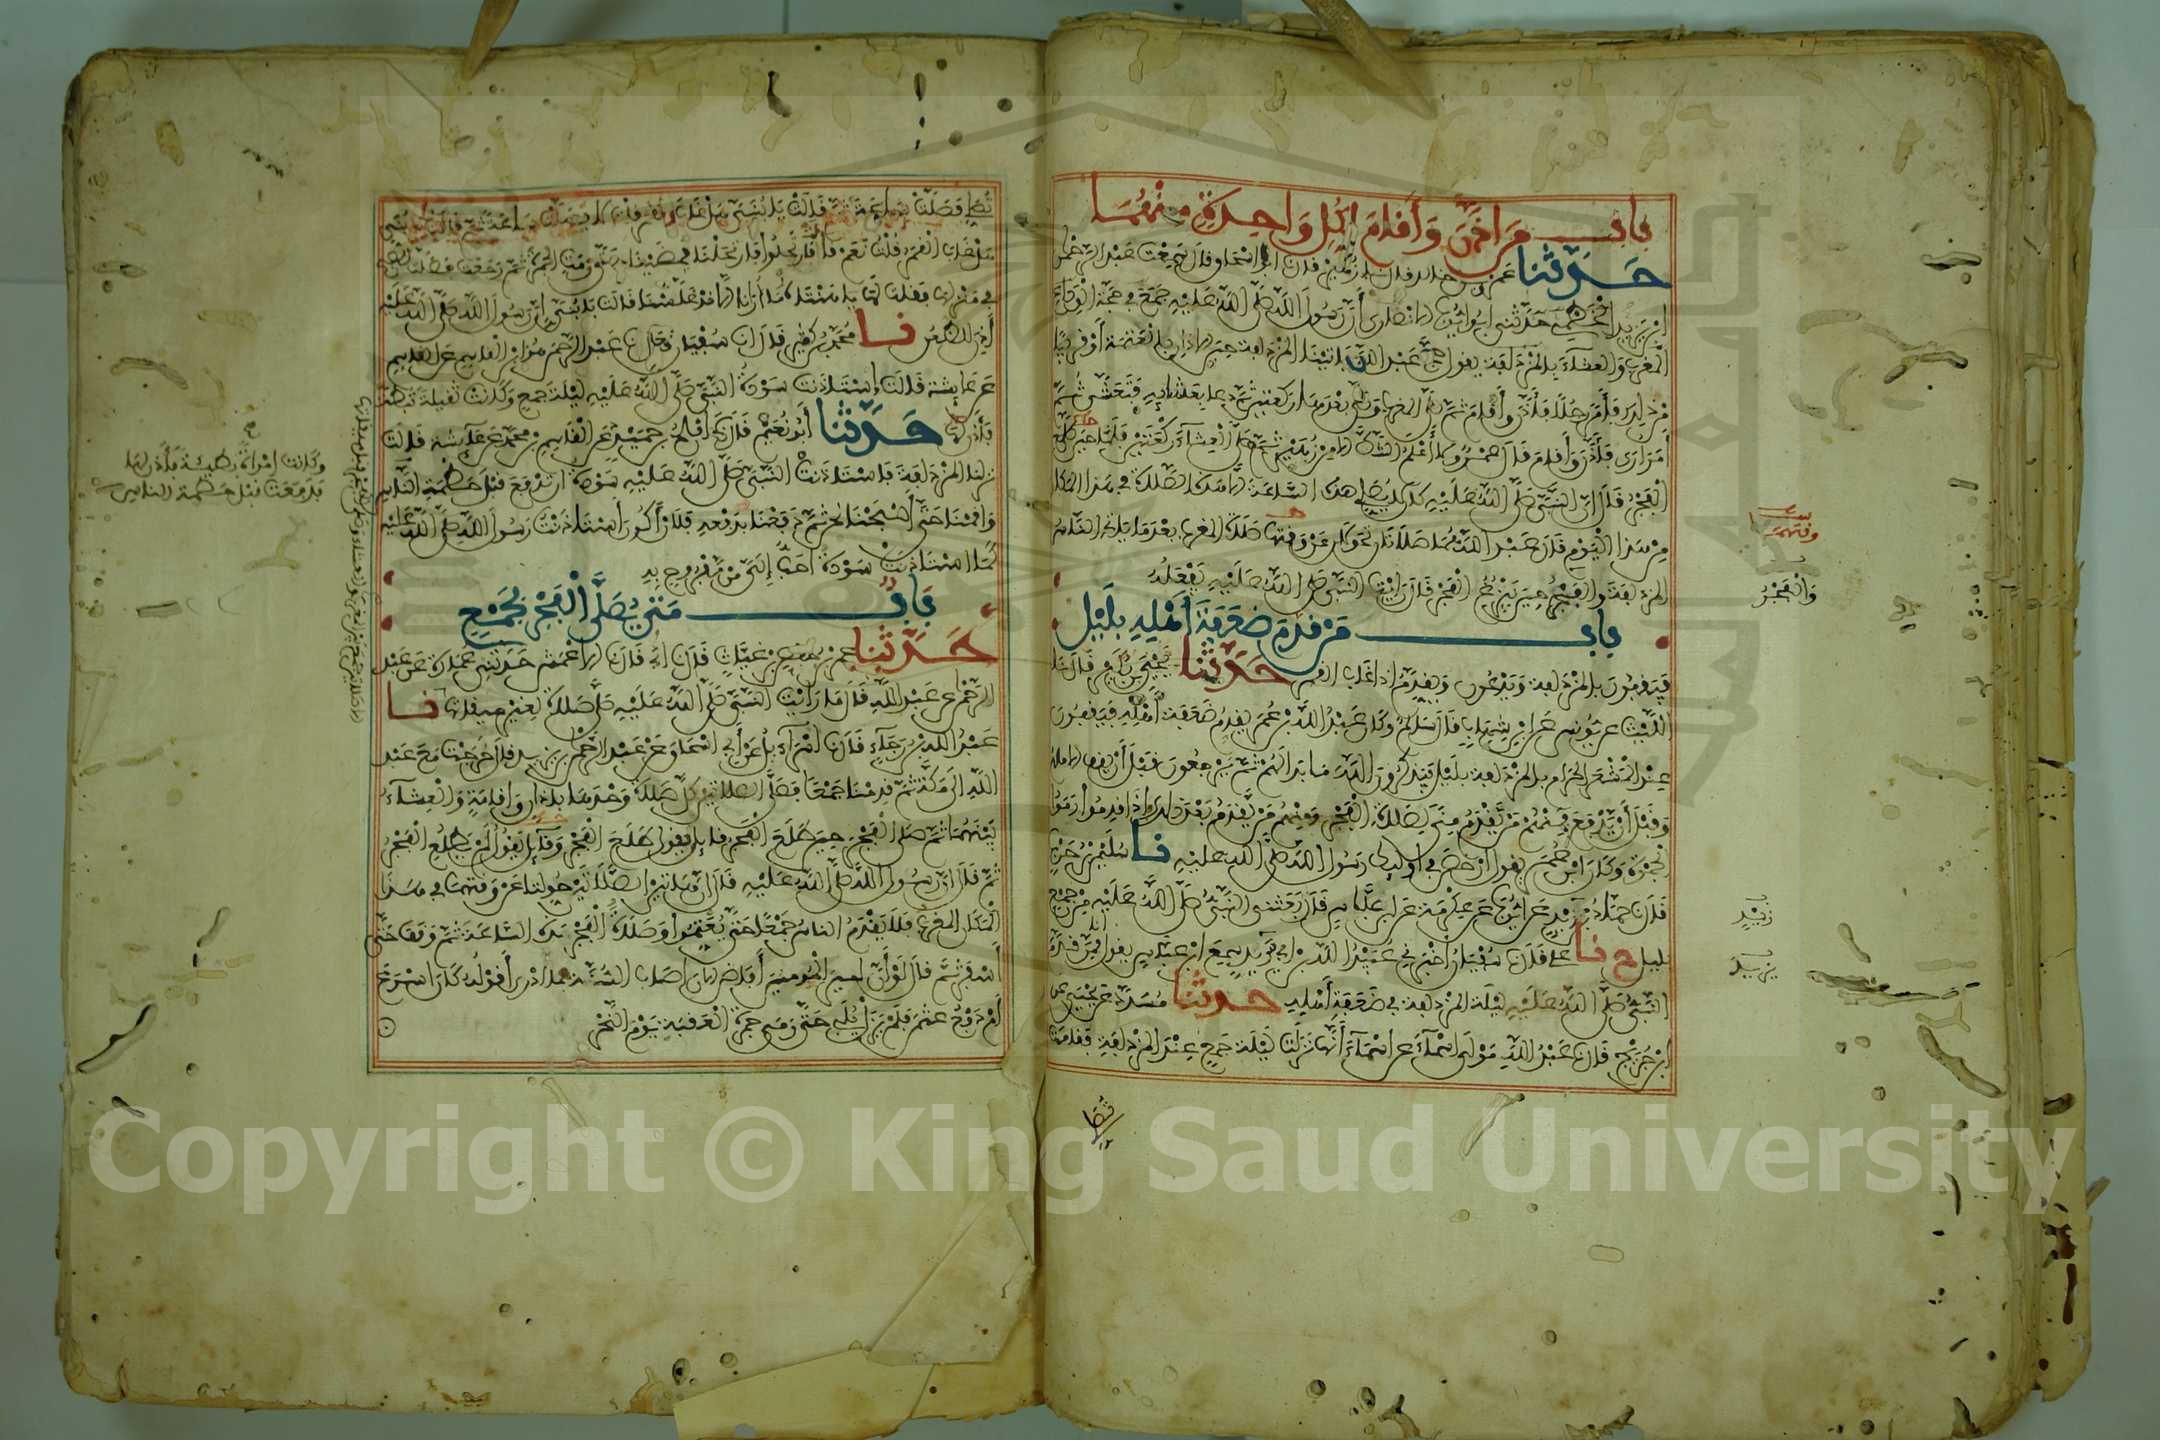 باب من أذن وأقام لكل واحدة منهما
حدثنا عمرو بن خالد قال نا زهير قال نا أبو إسحاق قال سمعت عبد الرحمن
ابن يزيد حدثني أبو ان رسول الله صلى الله عليه جمع في حجة الوداع
المغرب والعشاء بالمزدلفة يقول حج عبد الله فأتينا المزدلفة حين الأذان بالعتمة أو قريبا
من ذلك فأمر رجلا فأذن وأقام ثم صلى المغرب وصلى بعدها ركعتين ثم دعا بعشائه فتعشى ثم
أمر أرى فأذن وأقام قال عمرو لا أعلم الشك إلا من زهير ثم صلى العشاء ركعتين فلما حين طلع
الفجر قال إن النبي صلى الله عليه كان لا يصلي هذه الساعة إلا هذه الصلاة في هذا المكان
من هذا اليوم قال عبد الله هما صلاتان تحولان عن وقتها صلاة المغرب بعد ما يأتي الناس
المزدلفة والفجر حين يبزغ الفجر قال رأيت النبي صلى الله عليه يفعله
باب من قدم ضعفة أهله بليل
فيقفون بالمزدلفة ويدعون ويقدم إذا غاب القمر حدثنا يحيى بن بكير قال نا
الليث عن يونس عن ابن شهاب قال سالم وكان عبد الله بن عمر يقدم ضعفة أهله فيقفون
عند المشعر الحرام بالمزدلفة بليل فيذكرون الله ما بدا لهم ثم يرجعون قبل أن يقف الإمام
وقبل أن يدفع فمنهم من يقدم منى لصلاة الفجر ومنهم من يقدم بعد ذلك فإذا قدموا رموا
الجمرة وكان ابن عمر يقول أرخص في أولئك رسول الله صلى الله عليه نا سليمن بن حرب
قال نا حماد بن زيد عن أيوب عن عكرمة عن ابن عباس قال بعثني النبي صلى الله عليه من جمع
بليل ح نا علي قال نا سفيان أخبرني عبيد الله بن أبي يزيد سمع ابن عباس يقول أنا ممن قدم
النبي صلى الله عليه ليلة المزدلفة في ضعفة أهله حدثنا مسدد عن يحيى عن
ابن جريج قال نا عبد الله مولى أسماء عن أسماء أنها نزلت ليلة جمع عند المزدلفة فقامت
تصلي
وقتهما
والفجر
زيد
يزيد
تصلي فصلت ساعة ثم قالت يا بني هل غاب القمر قلت لا فصلت ساعة ثم قالت يا بني
هل غاب القمر قلت نعم قالت فارتحلوا فارتحلنا فمضينا حتى رمت الجمرة ثم رجعت فصلت الصبح
في منزلها فقلت لها يا هنتاه ما أرانا إلا قد غلسنا قالت يا بني إن رسول الله صلى الله عليه
أذن للظعن نا محمد بن كثير قال نا سفيان قال نا عبد الرحمن هو ابن القاسم عن القاسم
عن عائشة قالت استأذنت سودة النبي صلى الله عليه ليلة جمع وكانت ثقيلة ثبطة
فأذن لها حدثنا أبو نعيم قال نا أفلح بن حميد عن القاسم بن محمد عن عائشة قالت
نزلنا المزدلفة فاستأذنت النبي صلى الله عليه سودة أن تدفع قبل حطمة الناس
وأقمنا حتى أصبحنا نحن ثم دفعنا بدفعه فلأن أكون استأذنت رسول الله صلى الله عليه
كما استأذنت سودة أحب إلي من مفروح به
باب متى يصلى الفجر بجمع
حدثنا عمر بن حفص بن غياث قال نا أبي قال نا الأعمش حدثني عمارة عن عبد
الرحمن عن عبد الله قال ما رأيت النبي صلى الله عليه صلى صلاة لغير ميقاتها نا
عبد الله بن رجاء قال نا إسرائيل عن أبي إسحاق عن عبد الرحمن بن يزيد قال خرجت مع عبد
الله إلى مكة ثم قدمنا جمعا فصلى الصلاتين كل صلاة وحدها بأذان وإقامة والعشاء
بينهما ثم صلى الفجر حين طلع الفجر قائل يقول طلع الفجر وقائل يقول لم يطلع الفجر
ثم قال إن رسول الله صلى الله عليه قال إن هاتين الصلاتين حولتا عن وقتهما في هذا
المكان المغرب فلا يقدم الناس جمعا حتى يعتموا وصلاة الفجر هذه الساعة ثم وقف حتى
أسفر ثم قال لو أن أمير المؤمنين أفاض الآن أصاب السنة فما أدري أقوله كان أسرع
أم دفع عثمن فلم يزل يلبي حتى رمى جمرة العقبة يوم النحر
وكانت امرأة بطيئة فأذن لها
فدفعت قبل حطمة الناس